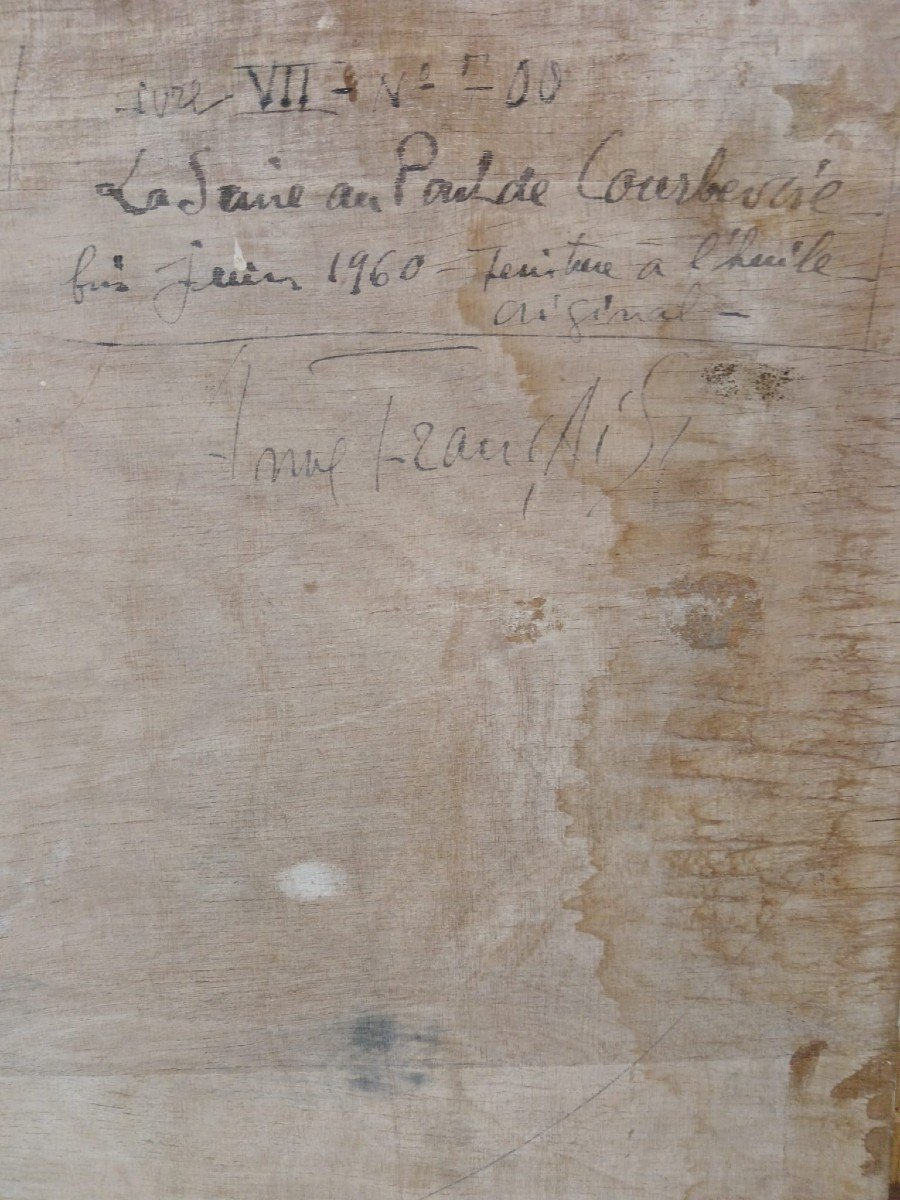 Livre VII - N° - 00
La Seine au Pont de Courbevoie
fin juin 1960 - peinture à l'huile
original -
Anne Français